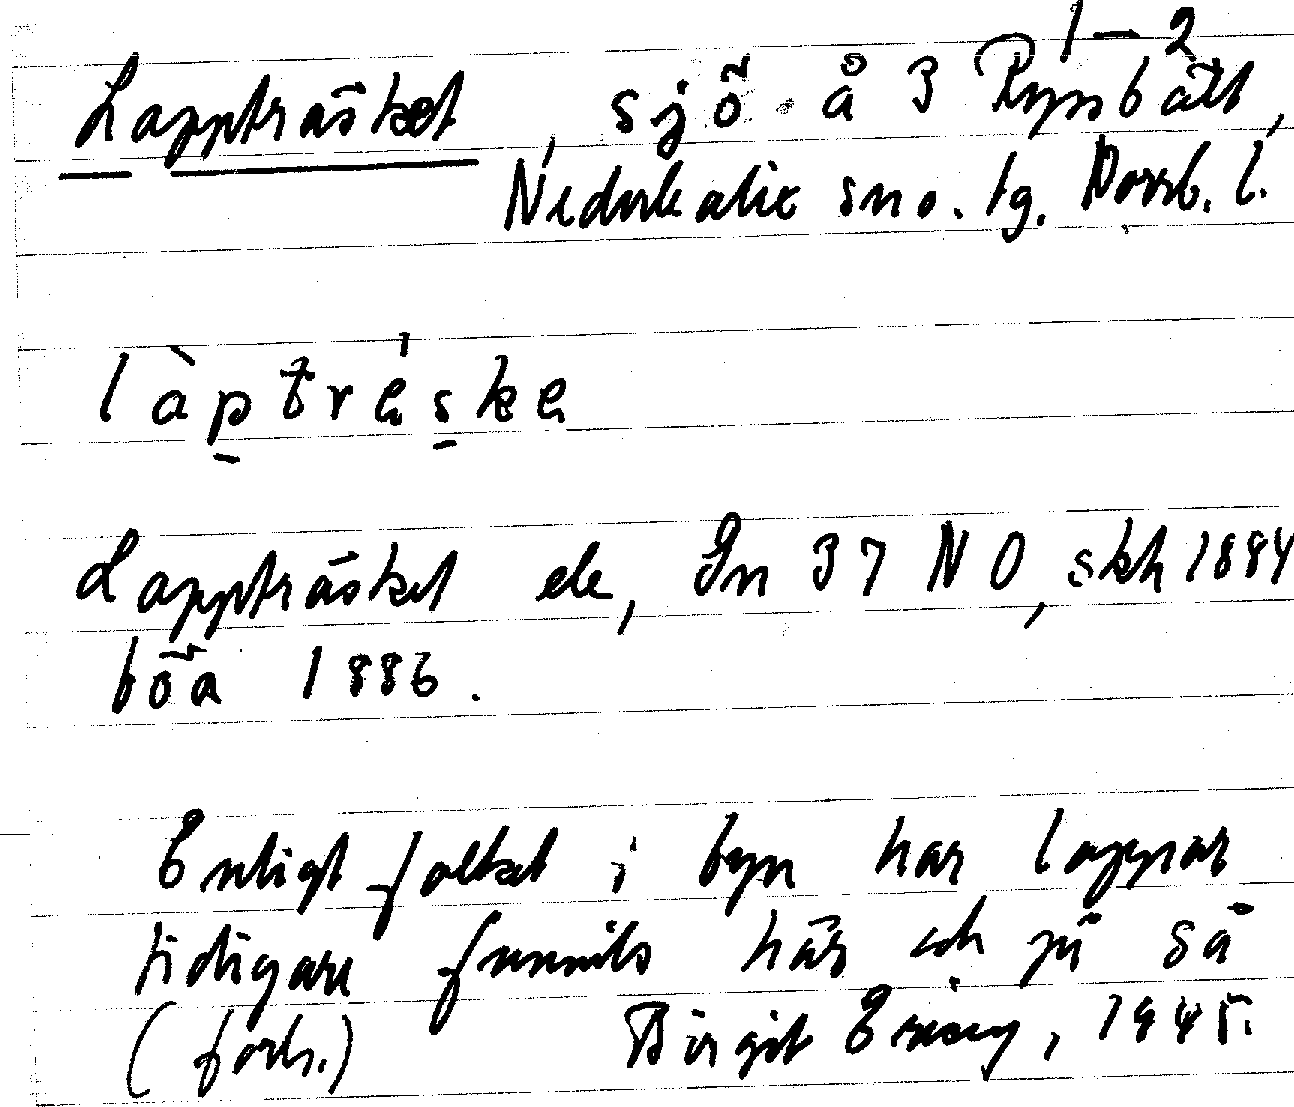 1–2
Lappträsket, sjö å 3 Rynbäck,
Nederkalix sn o. tg. Norrb. l.
làptrés̠ke
Lappträsket ek, Gn 37 NO, skh 1884
böa 1886.
Enligt folket i byn har lappar
tidigare funnits här och på så
(forts.) Birgit 1945.